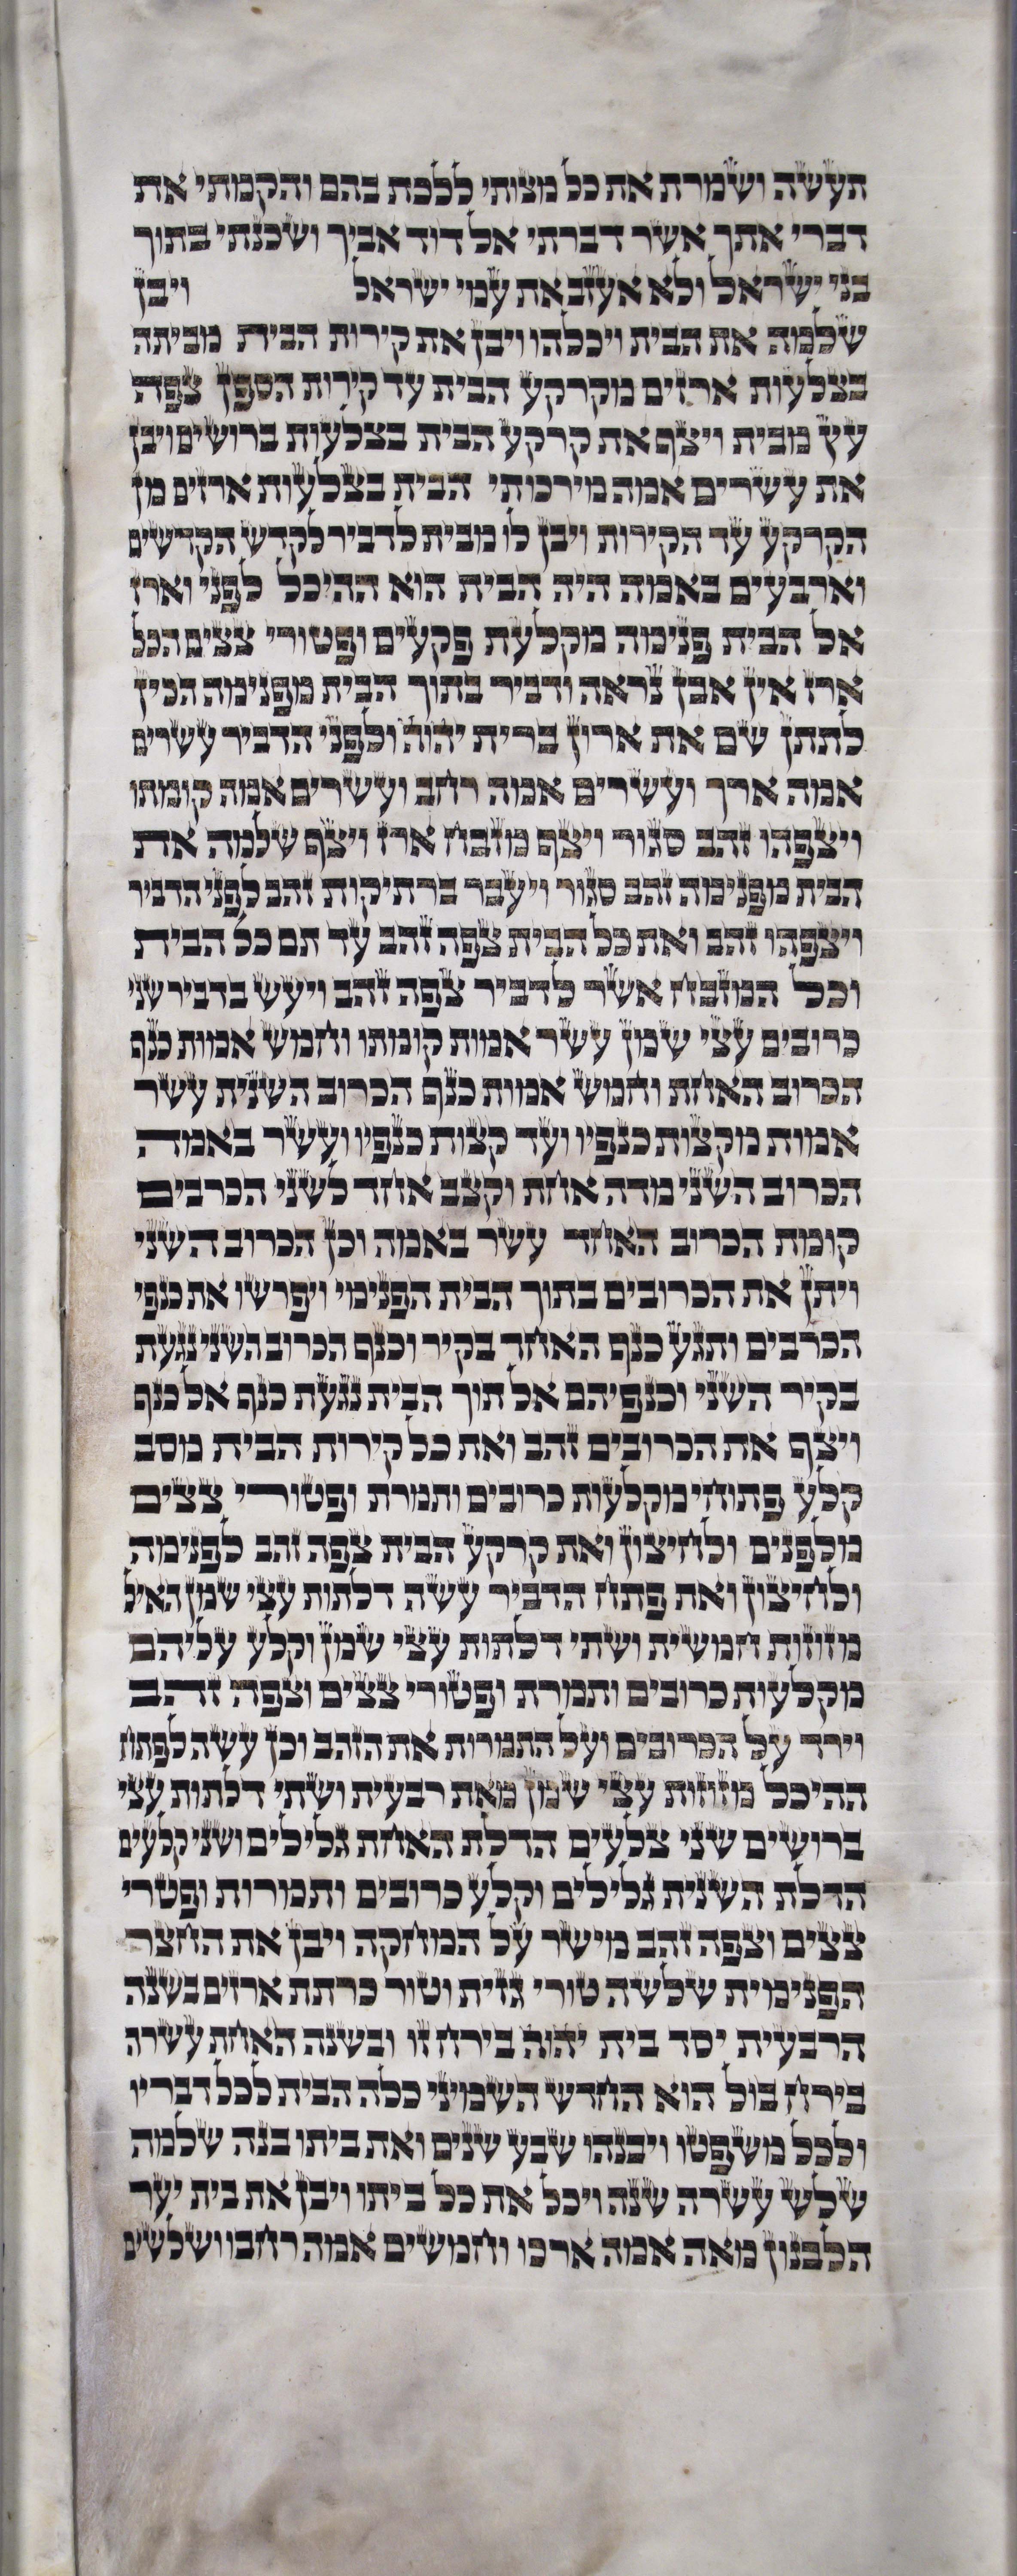 תעשה ושמרת את כל מצותי ללכת בהם והקמתי את
דברי אתך אשר דברתי אל דוד אביך ושכנתי בתוך
בני ישראל ולא אעזב את עמי ישראל ויבן
שלמה את הבית ויכלהו ויבן את קירות הבית מביתה
בצלעות ארזים מקרקע הבית עד קירות הספן צפה
עץ מבית ויצף את קרקע הבית בצלעות ברושים ויבן
את עשרים אמה מירכותי הבית בצלעות ארזים מן
הקרקע עד הקירות ויבן לו מבית לדביר לקדש הקדשים
וארבעים באמה היה הבית הוא ההיכל לפני וארז
אל הבית פנימה מקלעת פקעים ופטורי צצים הכל
ארז אין אבן נראה ודביר בתוך הבית מפנימה הכין
לתתן שם את ארון ברית יהוה ולפני הדביר עשרים
אמה ארך ועשרים אמה רחב ועשרים אמה קומתו
ויצפהו זהב סגור ויצף מזבח ארז ויצף שלמה את
הבית מפנימה זהב סגור ויעבר ברתיקות זהב לפני הדביר
ויצפהו זהב ואת כל הבית צפה זהב עד תם כל הבית
וכל המזבח אשר לדביר צפה זהב ויעש בדביר שני
כרובים עצי שמן עשר אמות קומתו וחמש אמות כנף
הכרוב האחת וחמש אמות כנף הכרוב השנית עשר
אמות מקצות כנפיו ועד קצות כנפיו ועשר באמה
הכרוב השני מדה אחת וקצב אחד לשני הכרבים
קומת הכרוב האחד עשר באמה וכן הכרוב השני
ויתן את הכרובים בתוך הבית הפנימי ויפרשו את כנפי
הכרבים ותגע כנף האחד בקיר וכנף הכרוב השני נגעת
בקיר השני וכנפיהם אל תוך הבית נגעת כנף אל כנף
ויצף את הכרובים זהב ואת כל קירות הבית מסב
קלע פתוחי מקלעות כרובים ותמרת ופטורי צצים
מלפנים ולחיצון ואת קרקע הבית צפה זהב לפנימה
ולחיצון ואת פתח הדביר עשה דלתות עצי שמן האיל
מזוזות חמשית ושתי דלתות עצי שמן וקלע עליהם
מקלעות כרובים ותמרת ופטורי צצים וצפה זהב
וירד על הכרובים ועל התמרות את הזהב וכן עשה לפתח
ההיכל מזוזות עצי שמן מאת רבעית ושתי דלתות עצי
ברושים שני צלעים הדלת האחת גלילים ושני קלעים
הדלת השנית גלילים וקלע כרובים ותמרות ופטרי
צצים וצפה זהב מישר על המחקה ויבן את החצר
הפנימית שלשה טורי גזית וטור כרתת ארזים בשנה
הרבעית יסד בית יהוה בירח זו ובשנה האחת עשרה
בירח בול הוא החדש השמיני כלה הבית לכל דבריו
ולכל משפטו ויבנהו שבע שנים ואת ביתו בנה שלמה
שלש עשרה שנה ויכל את כל ביתו ויבן את בית יער
הלבנון מאה אמה ארכו וחמשים אמה רחבו ושלשים